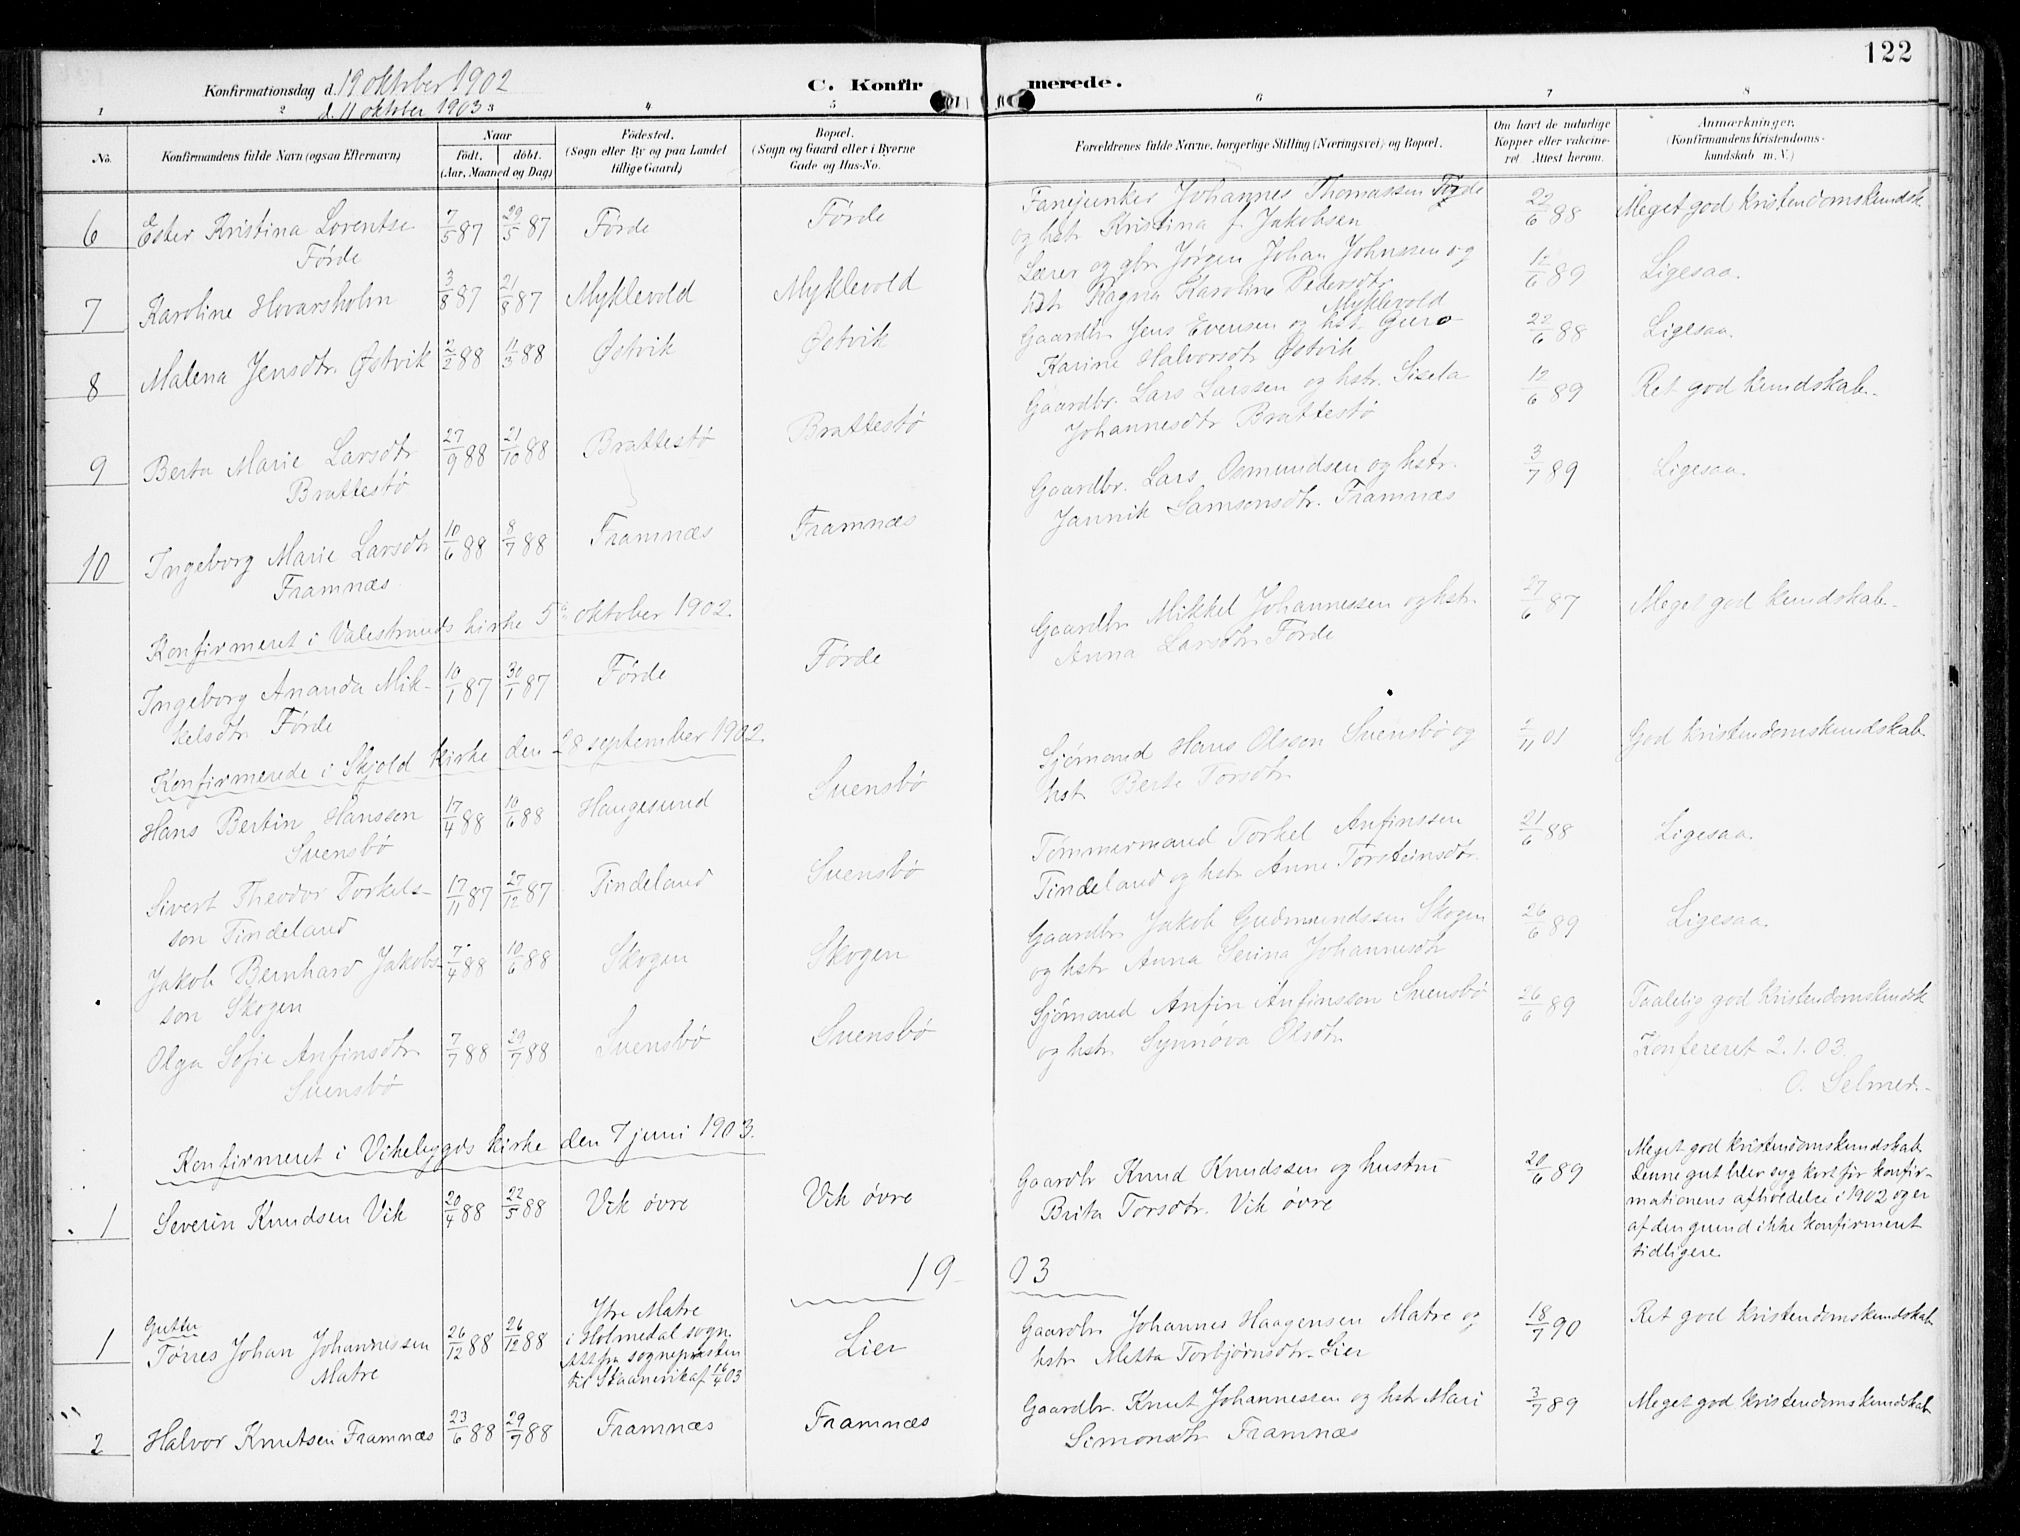 122
Konfirmationsdag d. 19 oktober 1902
d. 11 oktober 1903
C. Konfirmerede.
1 2 3 4 5 6 7 8
No.
Konfirmandens fulde Navn (ogsaa Efternavn)
Naar
født. døbt.
(Aar, Maaned og Dag)
Fødested.
(Sogn eller By og paa Landet
tillige Gaard)
Bopæl.
(Sogn og Gaard eller i Byerne
Gade og Hus-No.
Forældrenes fulde Navne, borgerlige Stilling (Næringsvei) og Bopæl.
Om havt de naturlige
Kopper eller vakcine-
ret. Attest herom.
Anmærkninger.
(Konfirmandens Kristendoms-
kundskab m. V.)
6 Ester Kristina Lorentse 7/5 87 29/5 87 Førde Førde Fanejunker Johannes Thomassen Førde 22/6 88 Meget god Kristendomskundsk.
Førde og hstr Kristina f. Jakobsen
7 Karoline Hovarsholm 3/8 87 21/8 87 Myklevold Myklevold Lærer og gbr. Jørgen Johan Johnssen og 12/6 89 Ligesaa.
hstr Ragna Karoline Pedersdtr
Myklevold
8 Malena Jensdtr. Østvik 2/2 88 11/3 88 Østvik Østvik Gaardbr. Jens Evensen og hst. Guro 22/6 88 Ligesaa.
Karine Halvorsdtr Østvik
9 Berta Marie Larsdtr 27/9 88 21/10 88 Brattestø Brattestø Gaardbr. Lars Larssen og hstr. Sisela 12/6 89 Ret god kundskab.
Brattestø Johannesdtr Brattestø
10 Ingeborg Marie Larsdtr 10/6 88 8/7 88 Framnæs Framnæs Gaardbr. Lars Osmundsen og hstr. 3/7 89 Ligesaa.
Framnæs Jannik Samsonsdtr. Framnæs
Konfirmeret i Valestrands kirke 5te oktober 1902.
Ingeborg Ananda Mik- 10/1 87 30/1 87 Førde Førde Gaardbr Mikkel Johannessen og hstr. 27/6 87 Meget god kundskab.
kelsdtr Førde Anna Larsdtr Førde
Konfirmerede i Skjold kirke den 28 september 1902.
Hans Bertin Hanssen 17/4 88 10/6 88 Haugesund Svensbø Sjømand Hans Olsson Svensbø og 2/11 01 God Kristendomskundskab
Svensbø hst Berte Torsdtr
Sivert Theodor Torkels- 17/11 87 27/12 87 Tindeland Svensbø Tømmermand Torkel Anfinssen 21/6 88 Ligesaa.
son Tindeland Tindeland og hstr Anne Torsteinsdtr.
Jakob Bernhard Jakobs- 7/4 88 10/6 88 Skogen Skogen Gaardbr Jakob Gudmundssen Skogen 26/6 89 Ligesaa.
son Skogen og hstr Anna Serina Johannesdtr
Olga Sofie Anfinsdtr 7/7 88 29/7 88 Svensbø Svensbø Sjømand Anfin Anfinssen Svensbø 26/6 89 Taalelig god Kristendomskundsk
Svensbø og hstr Synnøva Olsdtr
Konfereret 2.1.03.
O. Selmer.
Konfirmeret i Vikebygds kirke den 7 juni 1903.
1 Severin Knudsen Vik 20/4 88 22/5 88 Vik øvre Vik øvre Gaardbr Knud Knudssen og hustru 20/6 89 Meget god kristendomskundskab
Brita Torsdtr. Vik øvre
Denne gut blev syg kort før konfir-
mationens afholdelse i 1902 og er
af den grund ikke konfirmeret
tidligere.
19 03
Gutter
1 Tørres Johan Johannessen 26/12 88 26/12 88 Ytre Matre Lier Gaardbr Johannes Haagensen Matre og 18/7 90 Ret god kristendomskundskab
Matre i Holmedal sogn. hstr Metta Torbjørnsdtr. Lier
Att fra sognepresten
til Skaanevik af 16/4 03
2 Halvor Knutsen Framnæs 23/6 88 29/7 88 Framnæs Framnæs Gaardbr. Knut Johannessen og hstr Mari 3/7 89 Meget god kristendomskundskab
Simonsdtr Framnæs